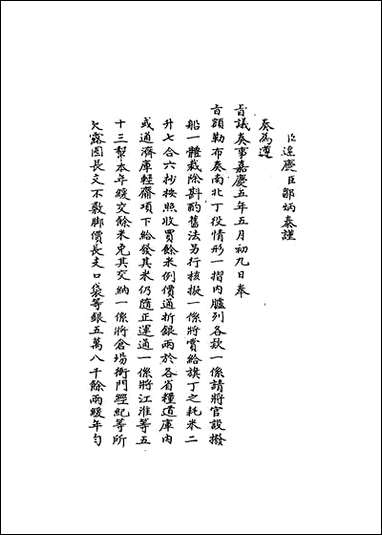 臣達慶臣鄒炳泰謹
奏為遵
旨議奏事嘉慶五年五月初九日奉
旨額勒布奏南北丁役情形一摺內臚列各款一條請將官設撥
船一體裁除斟酌舊法另行核擬一條將賞給旗丁之耗米二
升七合六抄按照收買餘米例價通折銀兩於各省糧道庫內
或通濟庫輕齎項下給發其米仍隨正運通一條將江淮等五
十三幫本年緩交餘米免其交納一條將倉場衙門經紀等所
欠露囤長支不敷腳價長支口袋等銀五萬八千餘兩緩年勻